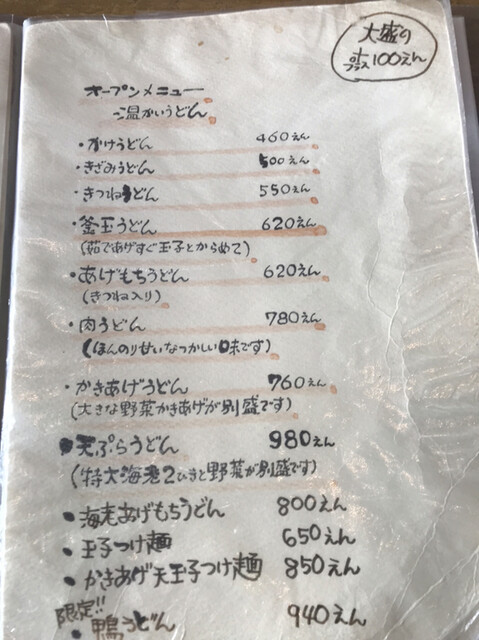 大盛り
プラス100えん
オープンメニュー
温かいうどん
・かけうどん 460えん
・きざみうどん 500えん
・きつねうどん 550えん
・釜玉うどん 620えん
(茹であげすぐ玉子とからめて)
・あげもちうどん 620えん
(きつね入り)
・肉うどん 780えん
(ほんのり甘いなつかしい味です)
・かきあげうどん 760えん
(大きな野菜かきあげが別盛です)
・天ぷらうどん 980えん
(特大海老2ひきと野菜が別盛です)
・海老あげもちうどん 800えん
・玉子つけ麺 650えん
・かきあげ天玉子つけ麺 850えん
限定!!
・鴨うどん 940えん